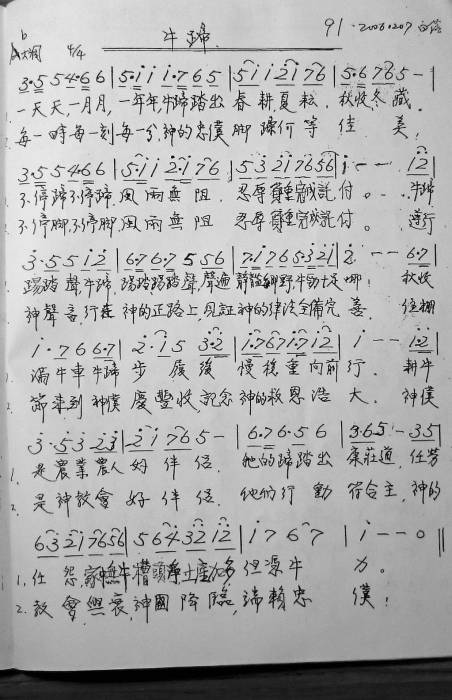 牛蹄
91. 2006.207
b A大調 4/4
3·5 5 4·6 6 | 5·i i i·7 6 5 | 5 i i 2 i 7 6 | 5·6 7 6 5 - |
1. 一天天,一月月,一年年,牛蹄踏出 春耕夏耘,秋收冬藏.
2. 每一時每一刻每一分,神的忠僕腳蹤何等佳美;
3·5 5 4·6 6 | 5·i i 2·i 7 6 | 5 3 2 1 7 6 5 6 | i - - i 2 |
1. 不停蹄不停蹄,風雨無阻.忍辱負重完成託付。牛蹄
2. 不停腳不停腳,風雨無阻 忍辱負重完成託付。遵行
3·5 5 i 2 | 6·7 6·7 5 5 6 | 7·i 7 6 5·3 2 1 | 2 - - 6·7 |
踢踏聲,牛蹄,踢踏踢踏聲,聲遍 秋收
神聲言行在 神的正路上,見証神的律法全備完善. 住棚
i·7 6 6·7 | 2·i 5 3·2 | i·7 6 7 i·7 i 2 | i - - i·2 |
1. 滿牛車牛蹄 步履緩 慢穩重向前行. 耕牛
2. 節來到 神僕慶豐收,記念神的救恩浩大. 神僕
3·5 3 2·3 | 2 i 7 6 5 - | 6·7 6·5 6 | 3·6 5 - 3 5 |
1. 是農業農人好伴侶. 牠的蹄踏出 康莊道,任勞
2. 是神教會好伴侶. 他們行動符合主,神的
6 3 2 1 7 6 5 6 | 5 6 4 3 2 i 2 | i 7 6 7 | i - - 0 ‖
1. 任怨,家無牛槽頭淨土產加多但憑牛力。
2. 教會興衰,神國降臨,端賴忠僕;